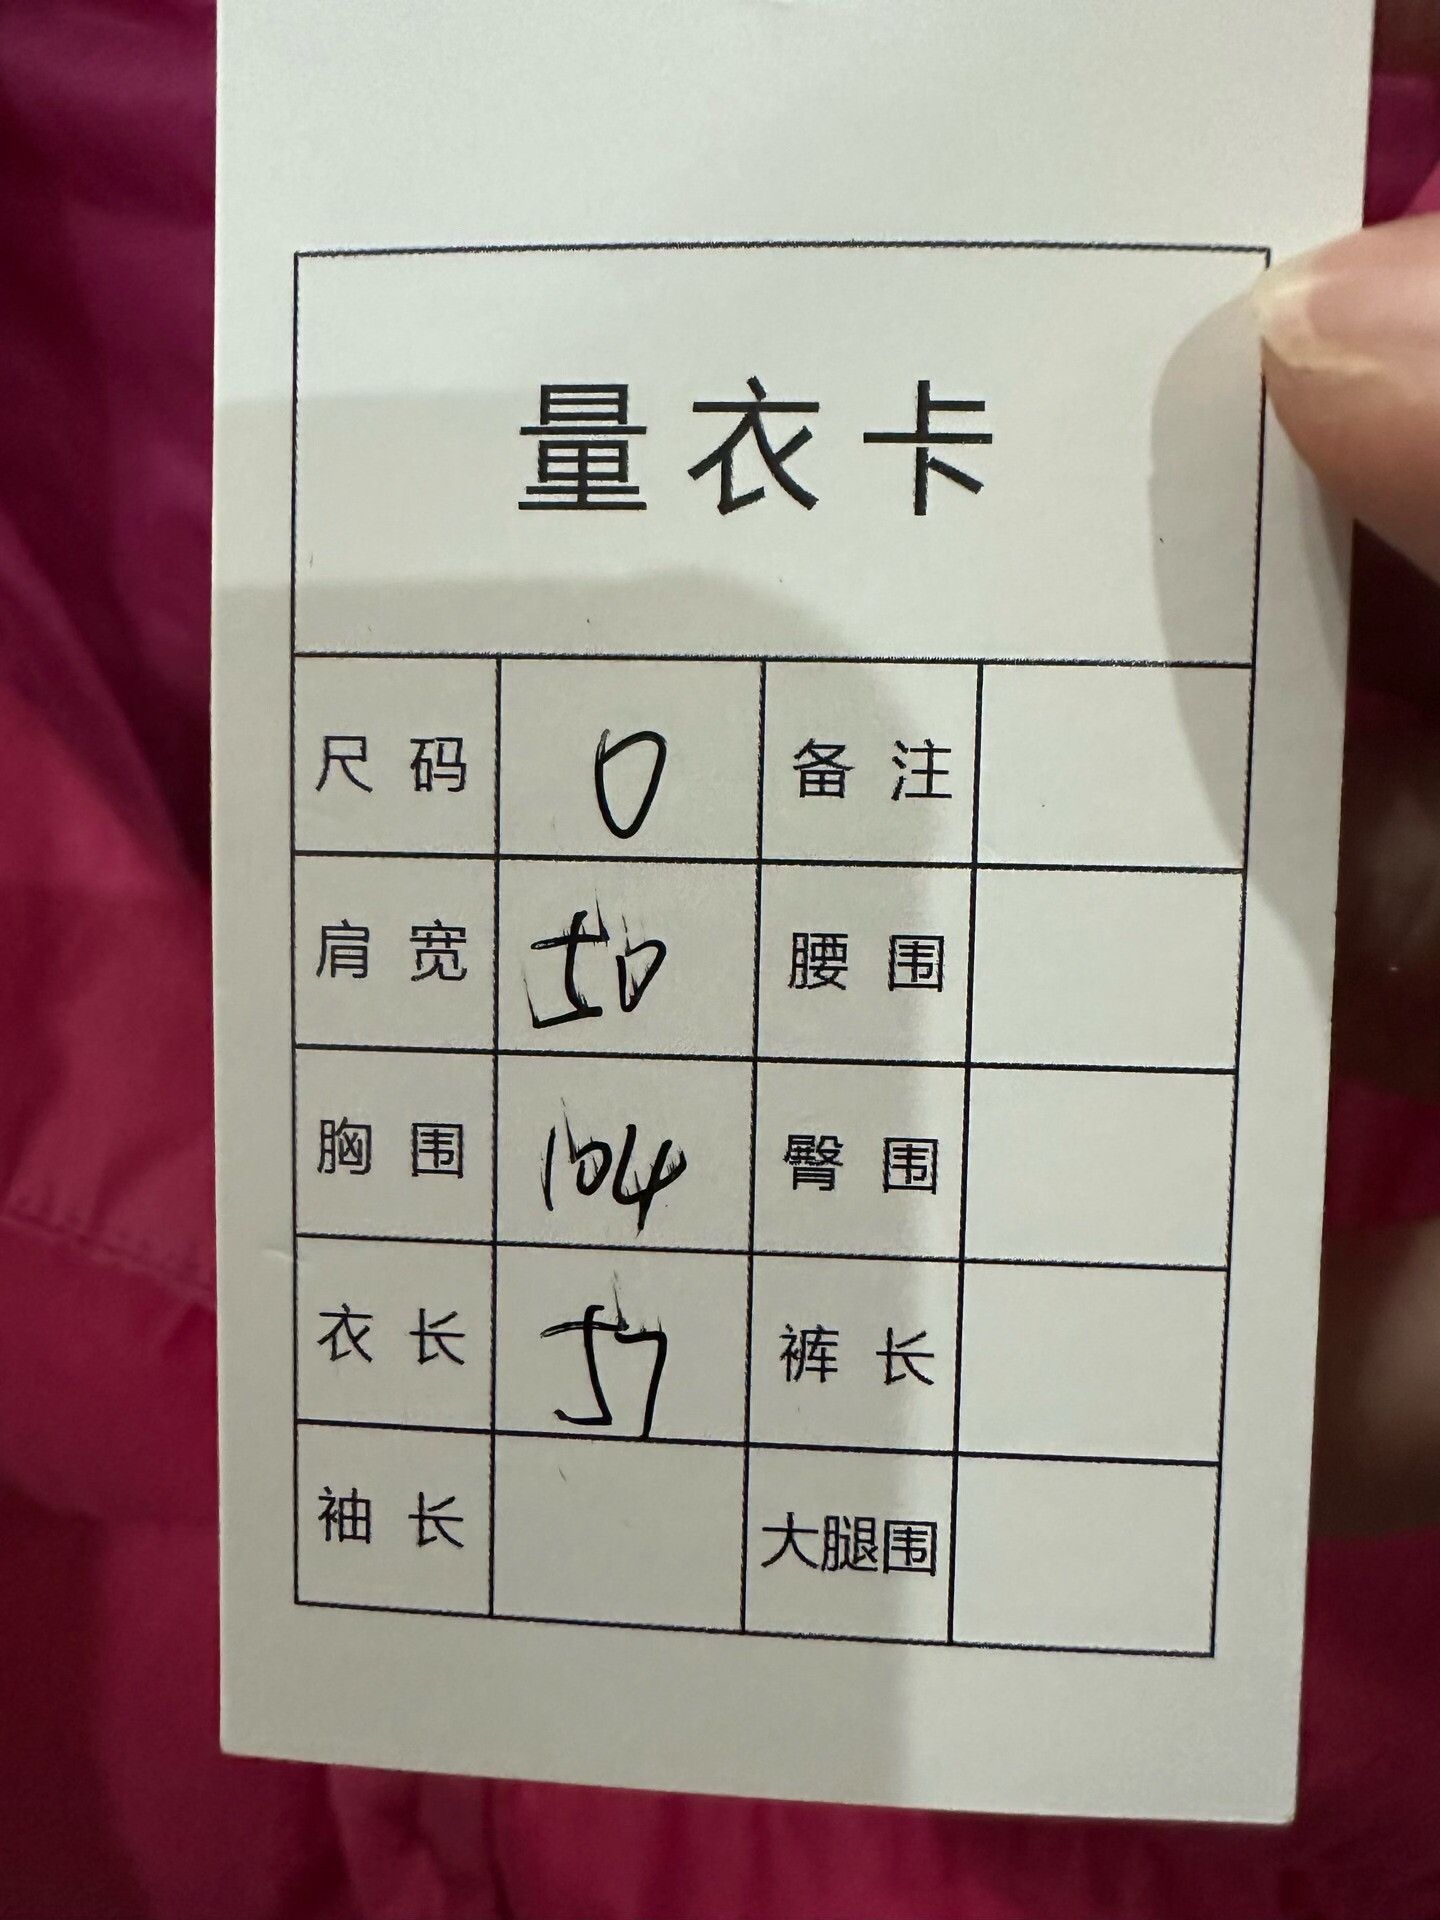 量衣卡
尺码 0 备注
肩宽 50 腰围
胸围 104 臀围
衣长 57 裤长
袖长 大腿围